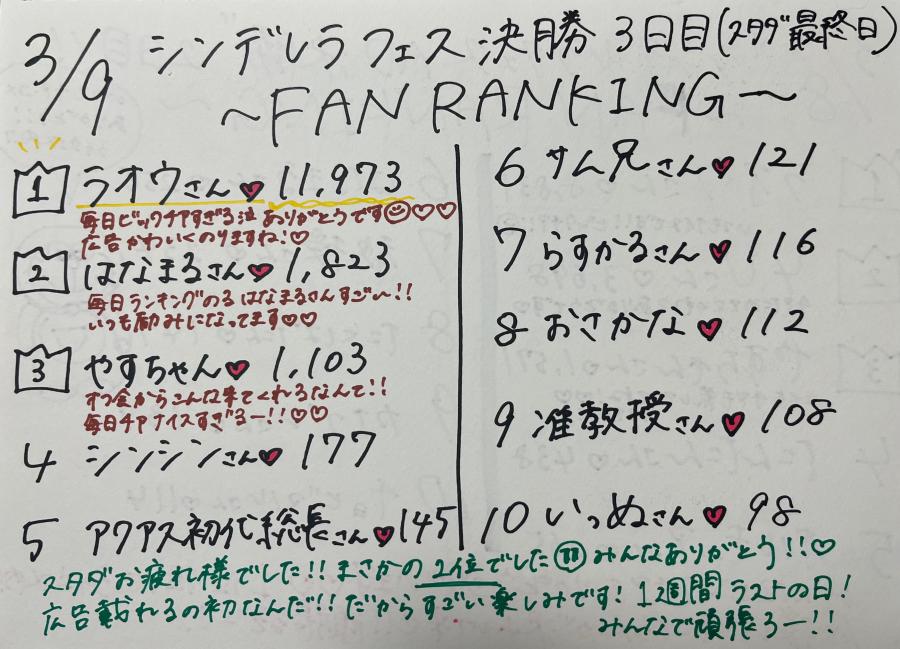 3/9 シンデレラフェス 決勝 3日目(スタダ最終日)
〜FAN RANKING〜
1 ラオウさん♥ 11,973
毎日ビックチャすぎる泣 ありがとうです☺♡♡
広告かわいくのりますね!♡
2 はなまるさん♥ 1,823
毎日ランキングのる はなまるさんすごい〜!!
いつも励みになってます♡♡
3 やすちゃん♥ 1,103
オフ会からこんな来てくれるなんて!!
毎日チアナイスすぎるー!!♡♡
4 シンシンさん♥ 177
5 アクアス初代総長さん♥145
6 サム兄さん♥ 121
7 らすかるさん♥ 116
8 おさかな♥ 112
9 准教授さん♥ 108
10 いっぬさん♥ 98
スタダお疲れ様でした!! まさかの 2位でした みんなありがとう!!♡
広告載れるの初なんだ!! だからすごい楽しみです! 1週間 ラストの日!
みんなで頑張ろー!!